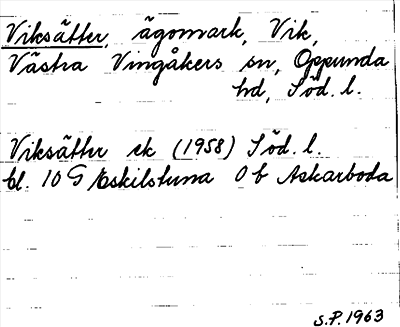 Viksätter, ägomark, Vik,
Västra Vingåkers sn, Oppunda
hd, Söd. l.
Viksätter ek (1958) Söd. l.
bl. 10 G Eskilstuna 0 b Askarboda
S.P. 1963